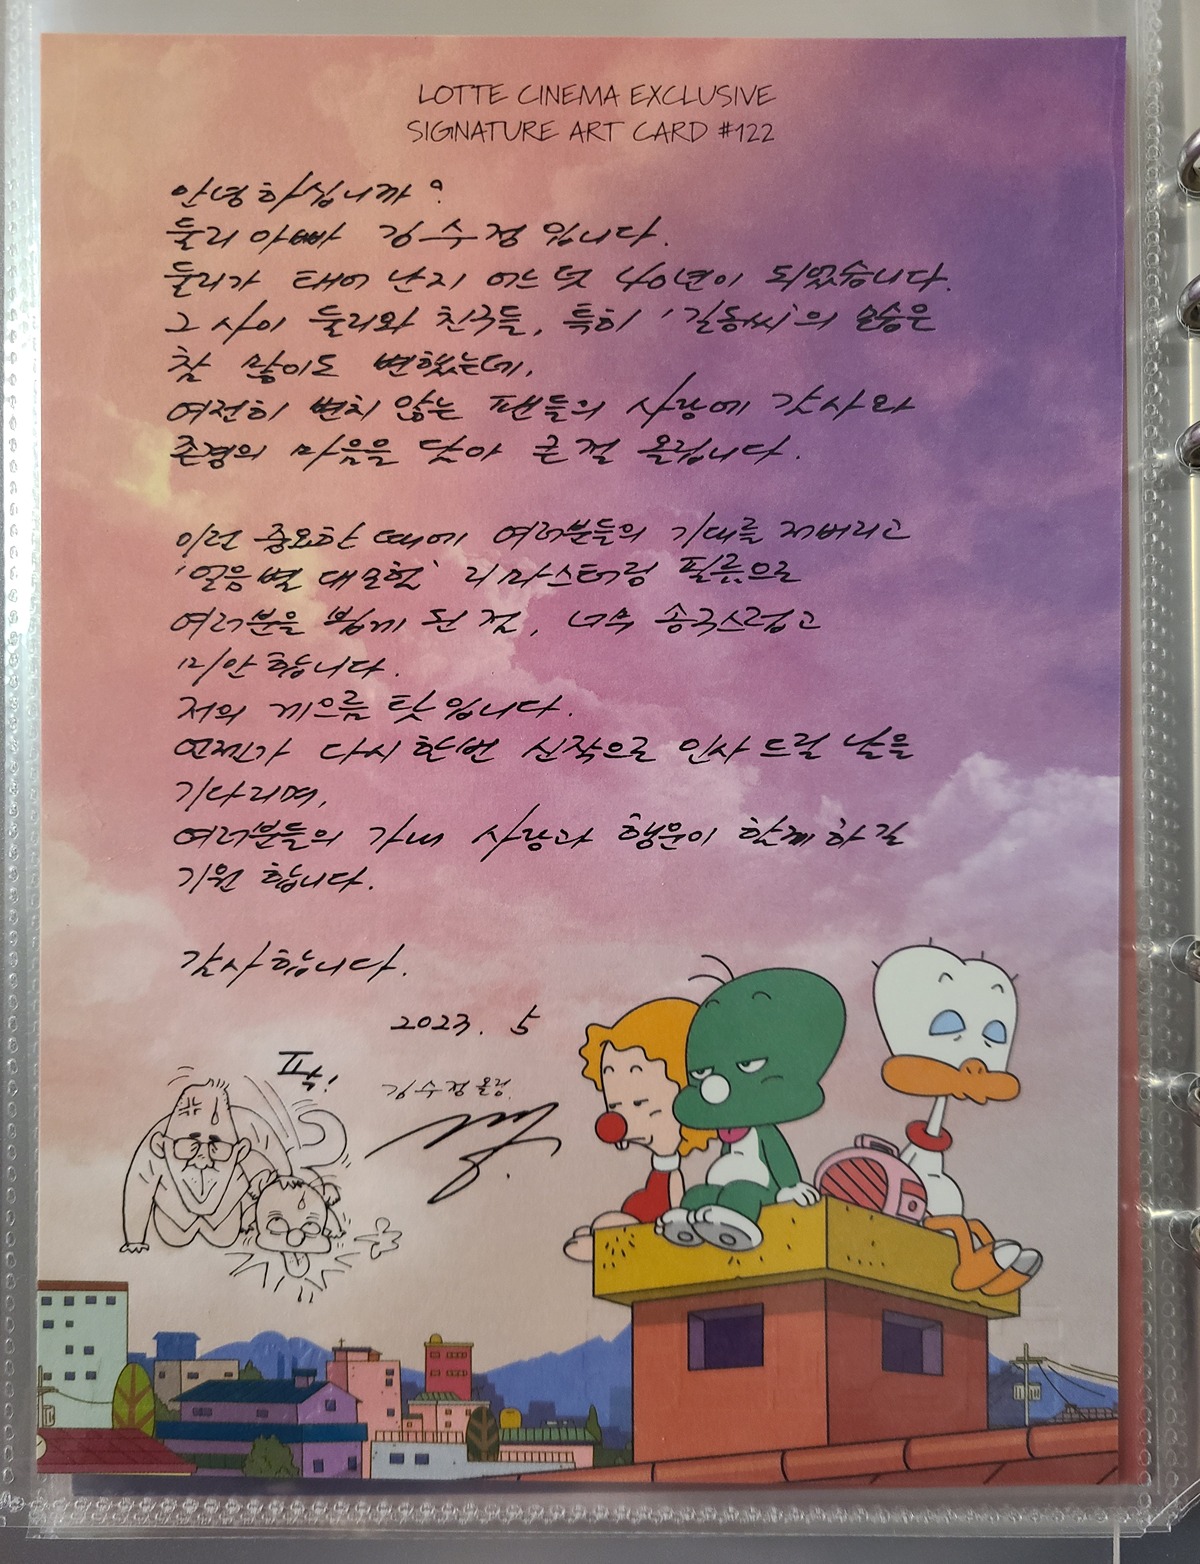 LOTTE CINEMA EXCLUSIVE
SIGNATURE ART CARD #122
안녕하십니까?
둘리 아빠 김수정입니다.
둘리가 태어난지 어느덧 40년이 되었습니다.
그 사이 둘리와 친구들, 특히 '길동씨'의 모습은
참 많이도 변했는데,
여전히 변치 않는 팬들의 사랑에 감사와
존경의 마음을 담아 큰절 올립니다.
이런 중요한 때에 여러분들의 기대를 저버리고
'얼음별 대모험' 리마스터링 필름으로
여러분을 뵙게 된 점, 너무 송구스럽고
미안합니다.
저의 게으름 탓입니다.
언젠가 다시 한번 신작으로 인사드릴 날을
기다리며,
여러분들의 가내 사랑과 행운이 함께 하길
기원합니다.
감사합니다.
2023. 5
김수정 올림.
퍽!